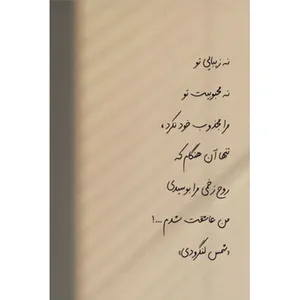 نه زیبایی تو
نه محبوبیت تو
مرا مجذوب خود نکرد،
تنها آن هنگام که
روح زخمی مرا بوسیدی
من عاشقت شدم...!
«شمس لنگرودی»